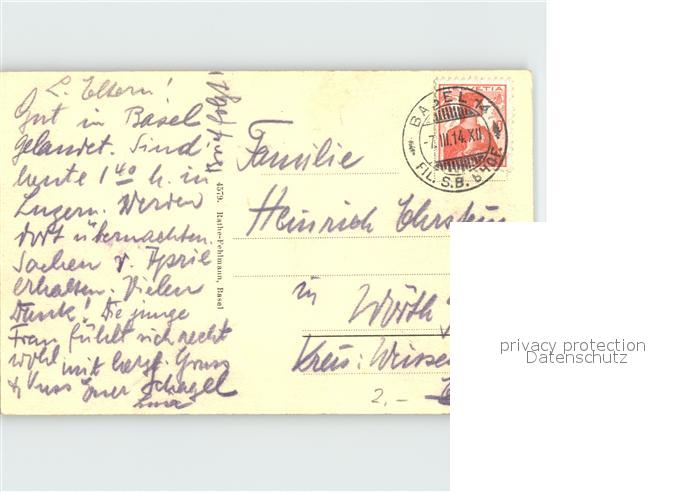 L. Eltern!
Gut in Basel
gelandet. Sind
heute 1 40 h. in
Luzern. Werden
dort übernachten.
Sachen v. April
erhalten. Vielen
Dank! Die junge
Frau fühlt sich recht
wohl mit herzl. Gruss
& Kuss Euer
4579. Rathe-Fehlmann, Basel
HELVETIA
BASEL 14
-7.III.14.XII
FIL. S.B. BHOF
Familie
Heinrich
in Wörth
Kreis: Weissen
2,-
privacy protection
Datenschutz